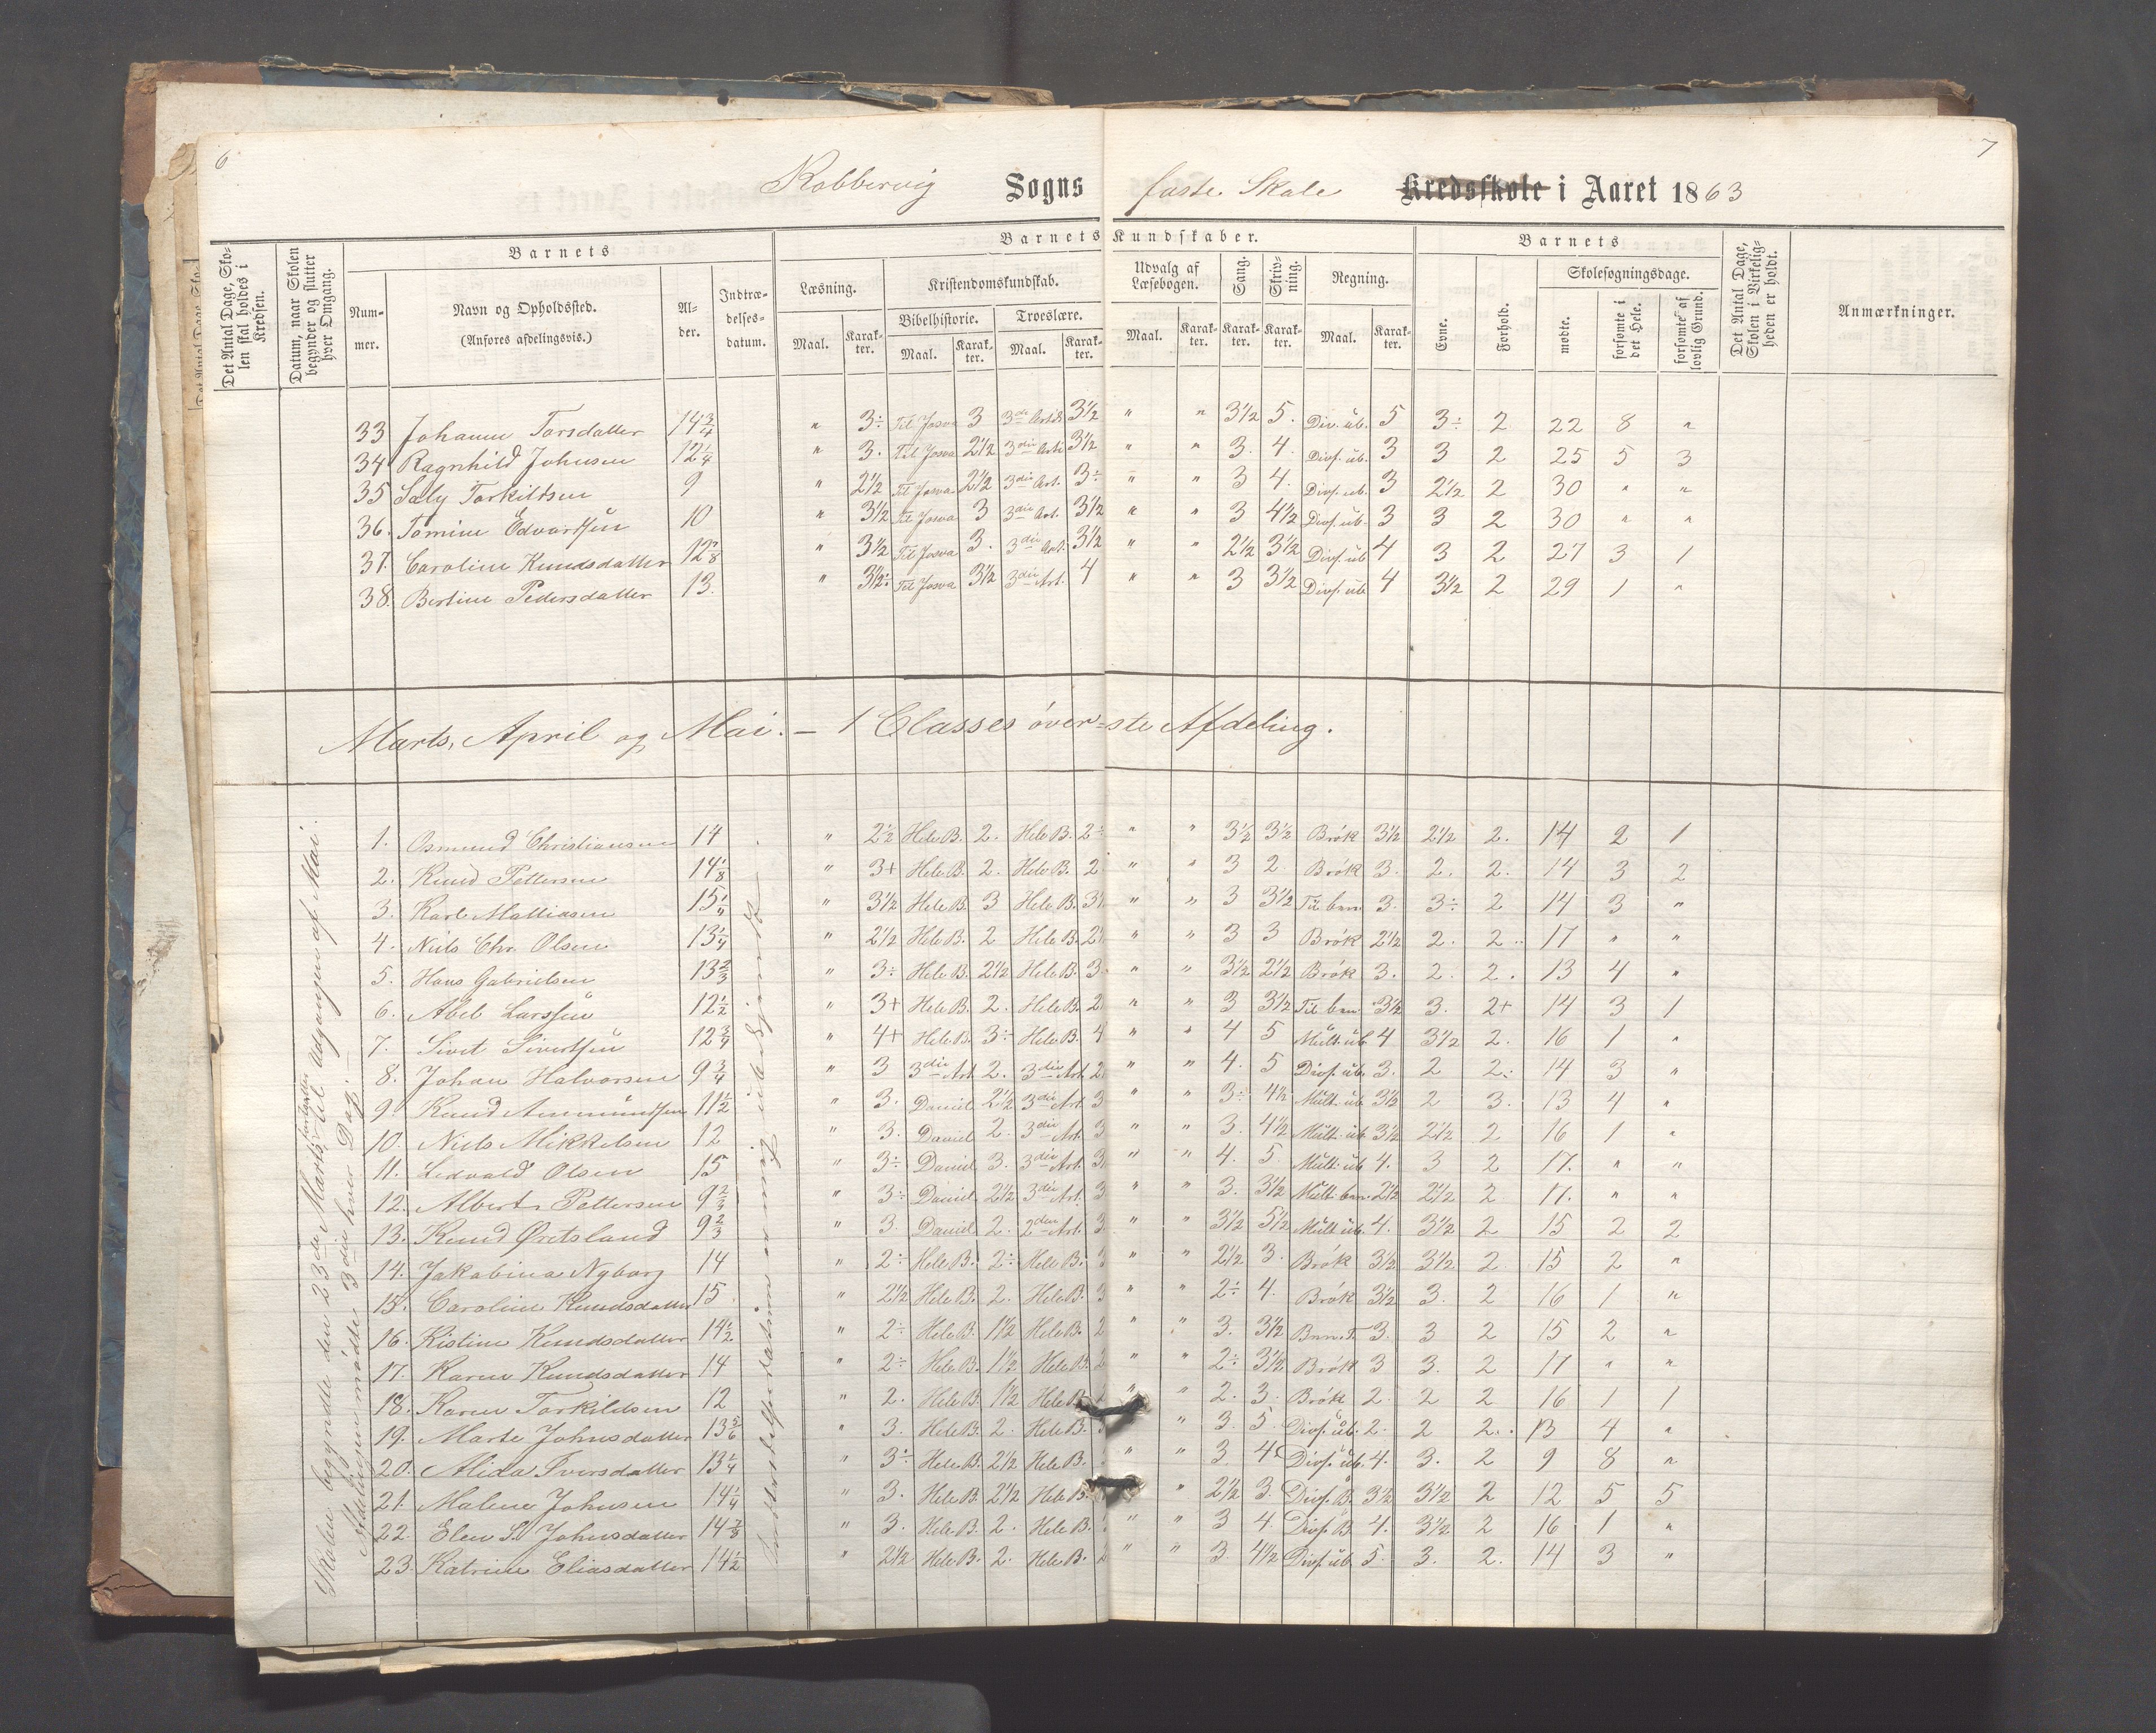 6
7
Kobbervig Sogns faste Skole Kredsskole i Aaret 1863
Det Antal Dage, Skolen skal holdes i Kredsen.
Datum, naar Skolen begynder og slutter hver Omgang.
Barnets
Nummer.
Navn og Opholdssted. (Anføres afdelingsvis.)
Alder.
Indtrædelsesdatum.
Barnets Kundskaber.
Læsning.
Maal. Karakter.
Kristendomskundskab.
Bibelhistorie. Troeslære.
Maal. Karakter. Maal. Karakter.
Udvalg af Læsebogen.
Maal. Karakter.
Sang.
Karakter.
Skrivning.
Karakter.
Regning.
Maal. Karakter.
Barnets
Evne.
Forhold.
Skolesøgningsdage.
mødte.
forsømte i det Hele.
forsømte af lovlig Grund.
Det Antal Dage, Skolen i Virkeligheden er holdt.
Anmærkninger.
33 Johanne Torsdatter 14 3/4 " 3÷ Til Josva 3 3die Art. 3½ " " 3½ 5. Div. üb. 5 3÷ 2 22 8 "
34 Ragnhild Johnsen 12 1/4 " 3. Til Josva 2½ 3die Art. 3½ " " 3. 4. Divs. üb. 3 3 2 25 5 3
35 Saly Torkildsen 9 " 2½ Til Josva 2½ 3die Art. 3÷ " " 3 4. Divs. üb. 3 2½ 2 30 " "
36. Tomine Edvartsen 10 " 3½ Til Josva 3 3die Art. 3½ " " 3 4½ Divs. üb. 3 3 2 30 " "
37. Caroline Knudsdatter 12 " 3½ Til Josva 3. 3die Art. 3½ " " 2½ 3½ Divs. üb 4 3 2 27 3 1
38. Bertine Pedersdatter 13. " 3½ Til Josva 3½ 3die Art. 4 " " 3 3½ Divs. üb 4 3½ 2 29 1 "
Marts, April og Mai. — 1 Classes över=ste Afdeling.
Skolen begyndte den 23de Marts, fortsattes til Udgangen af Mai.
Afdelingen mødte 3die hver Dag.
1. Osmund Christiansen 14 " 2½ Hele B. 2. Hele B. 2÷ " " 3½ 3½ Brök 3½ 2½ 2. 14 2 1
2. Knud Pettersen 14 1/8 " 3+ Hele B. 2. Hele B. 2 " " 3 2 Brök 3. 2. 2. 14 3 2
3. Karl Mattiasen 15 " 3½ Hele B. 3 Hele B. 3½ " " 3 3½ Til ben. 3. 3÷ 2 14 3 "
4. Niels Chr. Olsen 13 1/4 " 2½ Hele B. 2 Hele B. 2½ " " 3 3 Brök 2½ 2. 2. 17 " "
5. Hans Gabrielsen 13 2/3 " 3÷ Hele B. 2½ Hele B. 3 " " 3½ 2½ Brök 3. 2. 2. 13 4 "
6. Abel Larssen 12 1/2 " 3+ Hele B. 2. Hele B. 2 " " 3 3½ Til ben. 3½ 3. 2+ 14 3 1
7. Sivert Sivertsen 12 3/4 " 4+ Hele B. 3÷ Hele B. 4 " " 4 5 Mült. üb 4 3½ 2. 16 1 "
8. Johan Halvorsen 9 3/4 " 3 3die Art. 2. 3die Art. 2 " " 4. 5 Divs. üb. 3. 2 2. 14 3 "
9. Knud Ammundsen 11 1/2 " 3. Daniel 2½ 3die Art. 3 " " 3÷ 4½ Mült. üb. 3½ 2 3. 13 4 "
10. Niels Mikkelsen 12 " 3. Daniel 2. 3die Art. 3 " " 3. 4½ Mült. üb 3½ 2½ 2 16 1 "
11. Ledvald Olsen 15 " 3÷ Daniel 3. 3die Art. 3 " " 4. 5 Mült. üb 4. 3 2 17. " "
12. Albert Pettersen 9 2/3 " 3÷ Daniel 2½ 3die Art. 3 " " 3. 3½ Mült. ben. 2½ 2½ 2 17. " "
13. Knud Øretsland 9 2/3 " 3. Daniel 2. 2den Art. 3 " " 3½ 5½ Mült. üb. 4. 3½ 2 15 2 2
14. Jakobina Nyborg 14 " 2÷ Hele B. 2÷ Hele B. 3 " " 2½ 3. Brök 3½ 3½ 2 15 2 "
15. Caroline Knudsdatter 15 " 2½ Hele B. 2. Hele B. 3 " " 2÷ 4. Brök 3½ 3. 2 16 1 "
16. Kistine Knudsdatter 14 1/2 " 2÷ Hele B. 1½ Hele B. 2 " " 3. 3½ Ben. T. 3. 3 2 15 2 "
17. Karen Knudsdatter 14 " 2÷ Hele B. 1½ Hele B. 2 " " 2÷ 3½ Brök 3 3. 2 17 " "
18. Karen Torkildsen 12 " 2. Hele B. 1½ Hele B. " " 2. 3. Brök 2. 2 2 16 1 1
19. Marte Johnsdatter 13 5/6 " 3. Hele B. 2. Hele B. 3 " 3. 5. Divs. üb. 2. 2 2. 13 4 "
20. Alida Iversdatter 13 1/4 " 3÷ Hele B. 2½ Hele B. " " 3. 4. Divs. üb. 4. 3. 2 9 8 "
21. Malene Johnsen 14 1/4 " 3. Hele B. 2½ Hele B. " 2½ 3. Divs. B. 3½ 3½ 2 12 5 5
22. Elen S. Johnsdatter 14 " 3. Hele B. 2. Hele B. " " 3 4. Divs. B. 4. 3½ 2 16 1 "
23. Katrine Eliasdatter 14 1/2 " 2½ Hele B. 2. Hele B. 2 " " 3. 4½ Divs. üb 5. 3. 2. 14 3 "